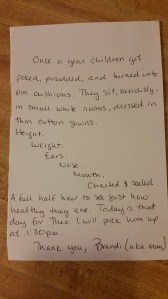 Once a year children get
poked, prodded, and turned into
pin cushions. They sit, nervously,
in small white rooms, dressed in
thin cotton gowns.
Height.
Weight.
Ears.
Nose.
Mouth.
Charted & sealed.
A full half hour to see just how
healthy they are. Today is that
day for Theo. I will pick him up
at 1:30pm.
Thank you, Brandi (aka Mom)